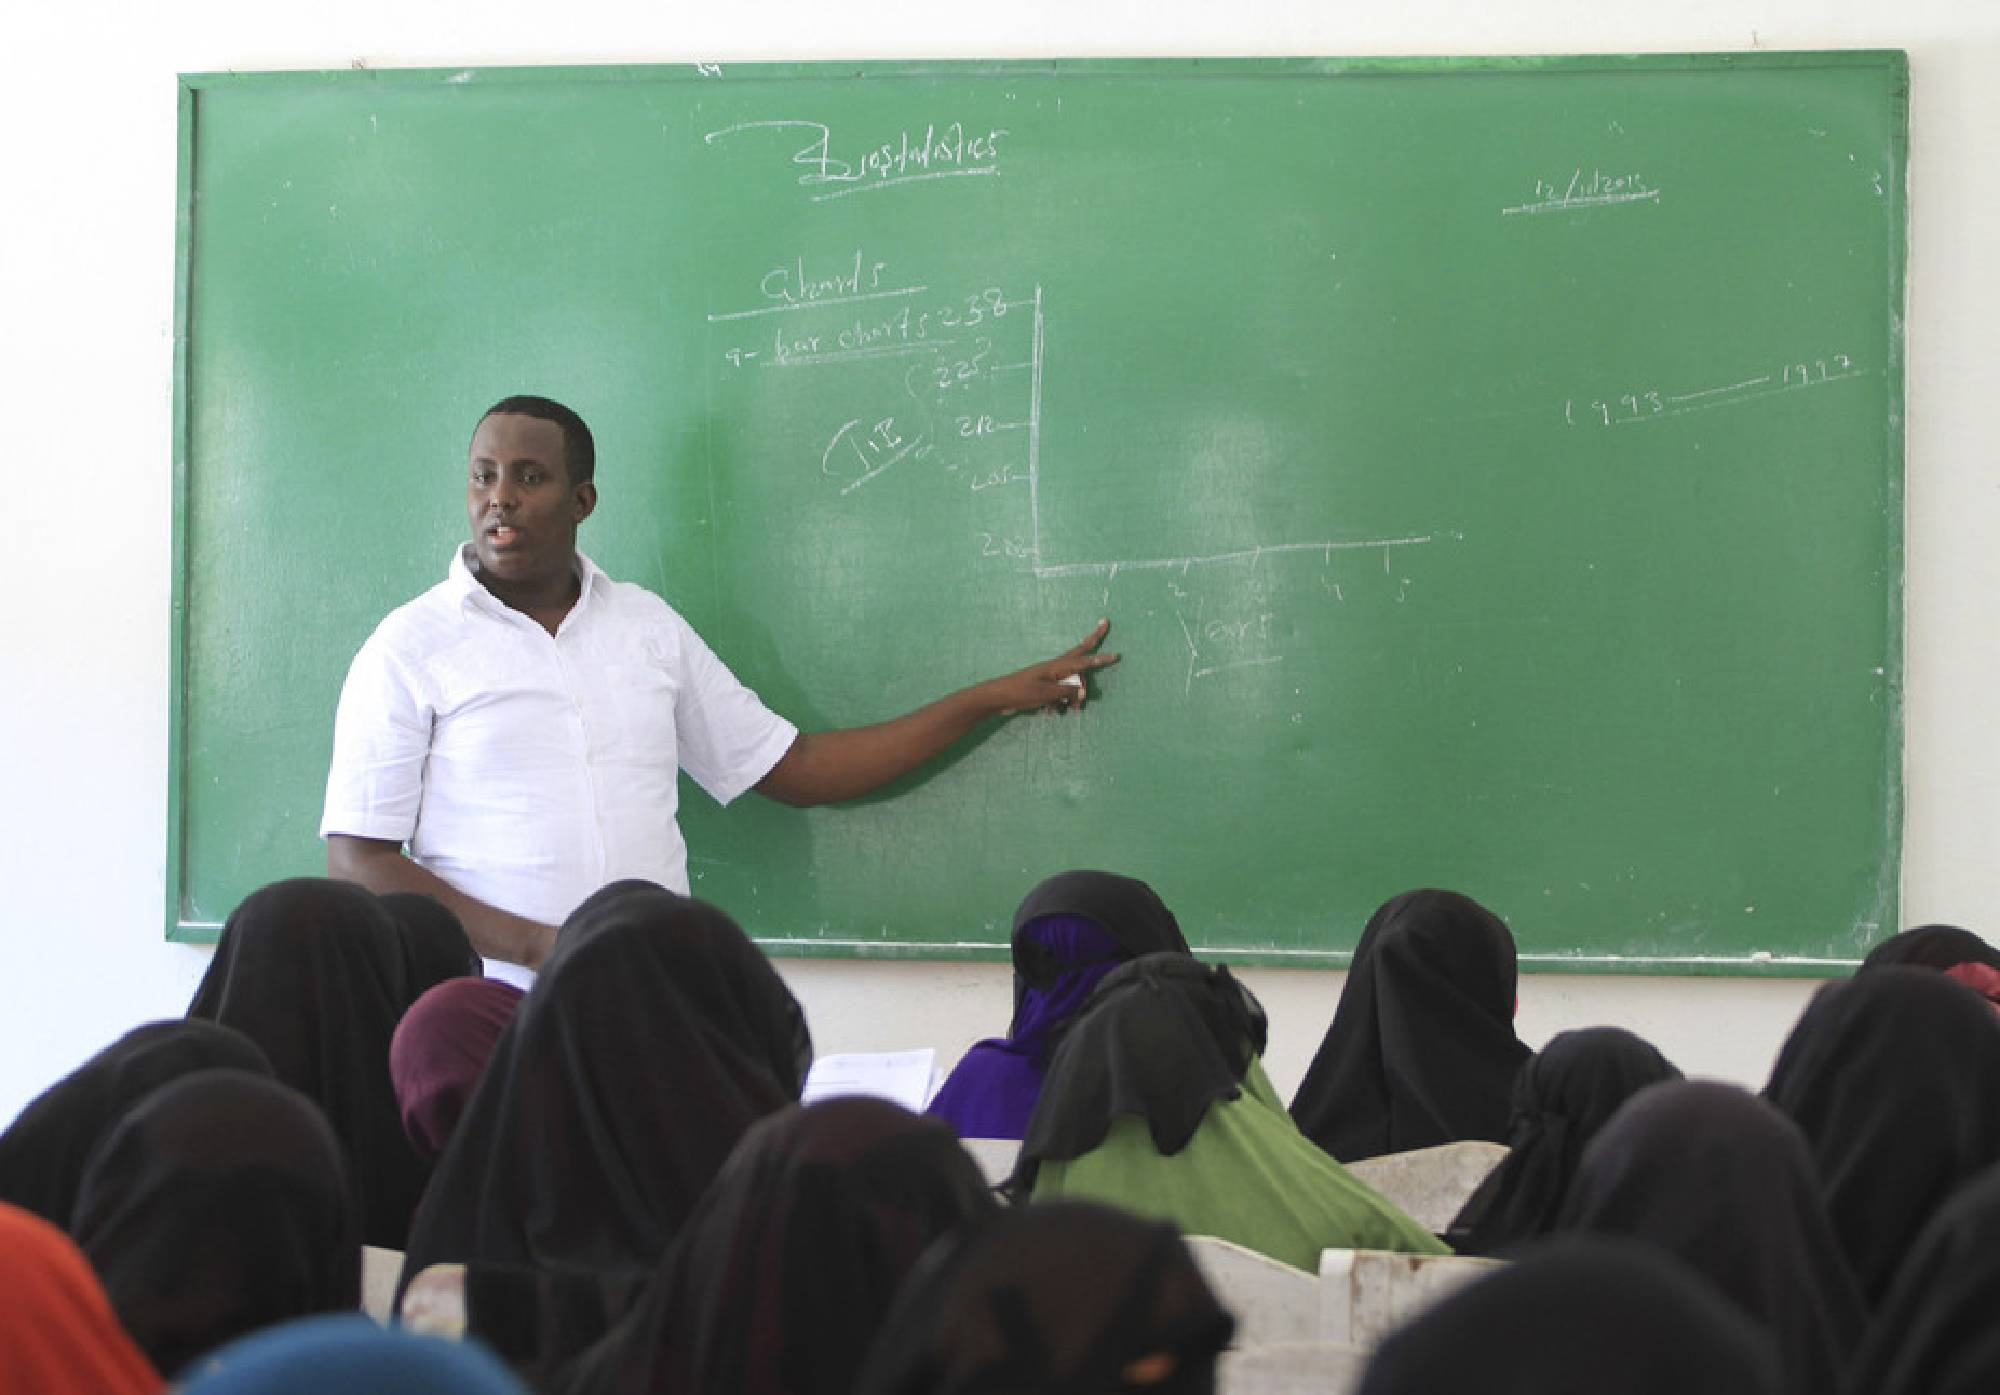 Biostatistics
12/11/2015
Charts
a- bar charts
238
225
212
205
1 2 3 4 5
Years
1993 — 1997